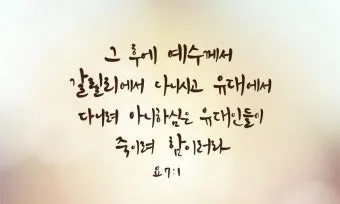 그 후에 예수께서
갈릴리에서 다니시고 유대에서
다니려 아니하심은 유대인들이
죽이려 함이러라
요 7:1